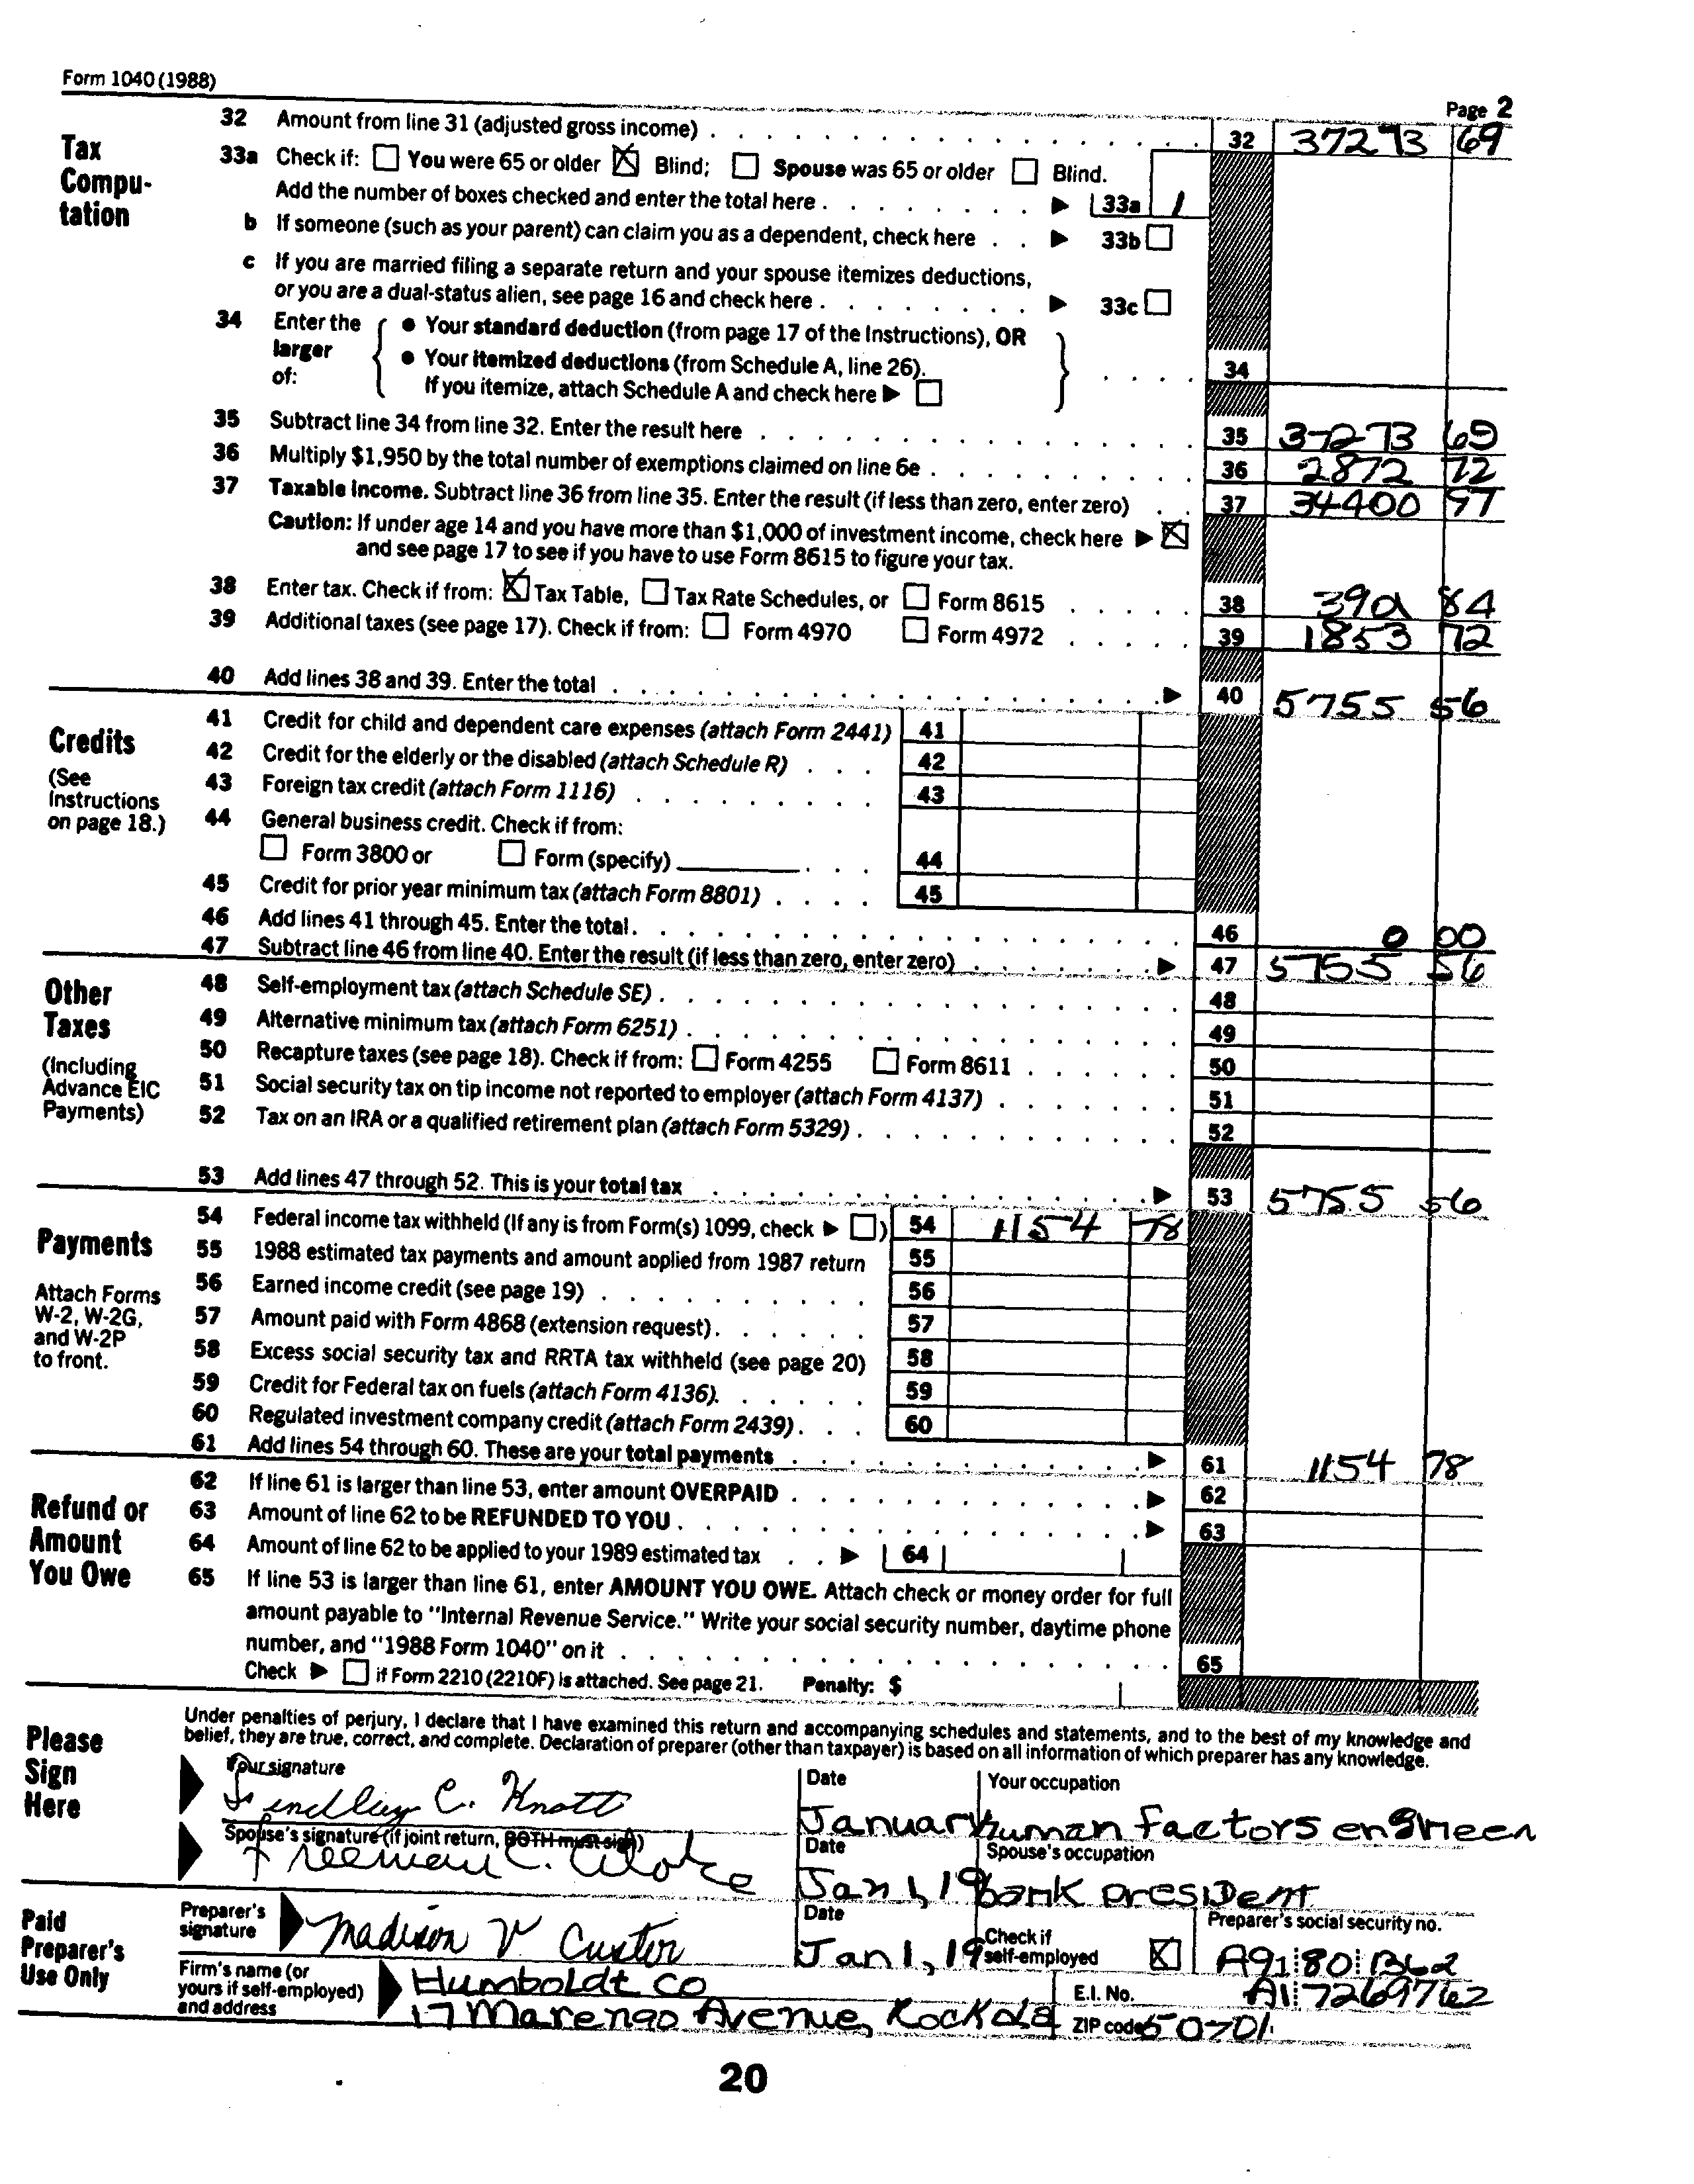 Form 1040 (1988)
Page 2
Tax Compu-tation
32 Amount from line 31 (adjusted gross income) 32 37273 69
33a Check if: You were 65 or older Blind; Spouse was 65 or older Blind.
Add the number of boxes checked and enter the total here 33a 1
b If someone (such as your parent) can claim you as a dependent, check here 33b
c If you are married filing a separate return and your spouse itemizes deductions,
or you are a dual-status alien, see page 16 and check here 33c
34 Enter the larger of:
• Your standard deduction (from page 17 of the Instructions), OR
• Your itemized deductions (from Schedule A, line 26).
If you itemize, attach Schedule A and check here 34
35 Subtract line 34 from line 32. Enter the result here 35 37273 69
36 Multiply $1,950 by the total number of exemptions claimed on line 6e 36 2872 72
37 Taxable income. Subtract line 36 from line 35. Enter the result (if less than zero, enter zero) 37 34400 97
Caution: If under age 14 and you have more than $1,000 of investment income, check here
and see page 17 to see if you have to use Form 8615 to figure your tax.
38 Enter tax. Check if from: Tax Table, Tax Rate Schedules, or Form 8615 38 84
39 Additional taxes (see page 17). Check if from: Form 4970 Form 4972 39 1853 72
40 Add lines 38 and 39. Enter the total 40 5755 56
Credits
(See Instructions on page 18.)
41 Credit for child and dependent care expenses (attach Form 2441) 41
42 Credit for the elderly or the disabled (attach Schedule R) 42
43 Foreign tax credit (attach Form 1116) 43
44 General business credit. Check if from:
Form 3800 or Form (specify) 44
45 Credit for prior year minimum tax (attach Form 8801) 45
46 Add lines 41 through 45. Enter the total 46 0 00
47 Subtract line 46 from line 40. Enter the result (if less than zero, enter zero) 47 5755 56
Other Taxes
(Including Advance EIC Payments)
48 Self-employment tax (attach Schedule SE) 48
49 Alternative minimum tax (attach Form 6251) 49
50 Recapture taxes (see page 18). Check if from: Form 4255 Form 8611 50
51 Social security tax on tip income not reported to employer (attach Form 4137) 51
52 Tax on an IRA or a qualified retirement plan (attach Form 5329) 52
53 Add lines 47 through 52. This is your total tax 53 5755 56
Payments
Attach Forms W-2, W-2G, and W-2P to front.
54 Federal income tax withheld (If any is from Form(s) 1099, check ) 54 1154 78
55 1988 estimated tax payments and amount applied from 1987 return 55
56 Earned income credit (see page 19) 56
57 Amount paid with Form 4868 (extension request) 57
58 Excess social security tax and RRTA tax withheld (see page 20) 58
59 Credit for Federal tax on fuels (attach Form 4136) 59
60 Regulated investment company credit (attach Form 2439) 60
61 Add lines 54 through 60. These are your total payments 61 1154 78
Refund or Amount You Owe
62 If line 61 is larger than line 53, enter amount OVERPAID 62
63 Amount of line 62 to be REFUNDED TO YOU 63
64 Amount of line 62 to be applied to your 1989 estimated tax 64
65 If line 53 is larger than line 61, enter AMOUNT YOU OWE. Attach check or money order for full
amount payable to "Internal Revenue Service." Write your social security number, daytime phone
number, and "1988 Form 1040" on it 65
Check if Form 2210 (2210F) is attached. See page 21. Penalty: $
Please Sign Here
Under penalties of perjury, I declare that I have examined this return and accompanying schedules and statements, and to the best of my knowledge and
belief, they are true, correct, and complete. Declaration of preparer (other than taxpayer) is based on all information of which preparer has any knowledge.
Your signature Date Your occupation
C. Knott January human factors engineer
Spouse's signature (if joint return, BOTH must sign) Date Spouse's occupation
Freeman C. Jan 1, 19 bank president
Paid Preparer's Use Only
Preparer's signature Date Check if self-employed Preparer's social security no.
Madison V. Custer Jan 1, 19 A91 80 1362
Firm's name (or yours if self-employed) and address
Humboldt CO E.I. No. A1 7269762
17 Marengo Avenue, ZIP code 50701
20